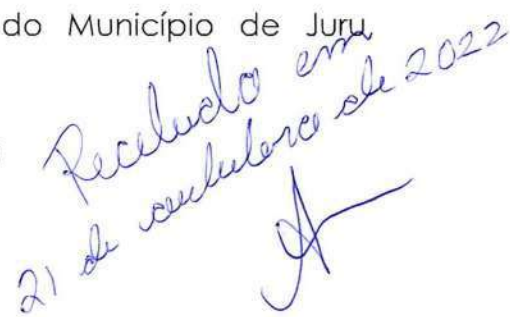 do Município de Juru
Recebido em
21 de outubro de 2022